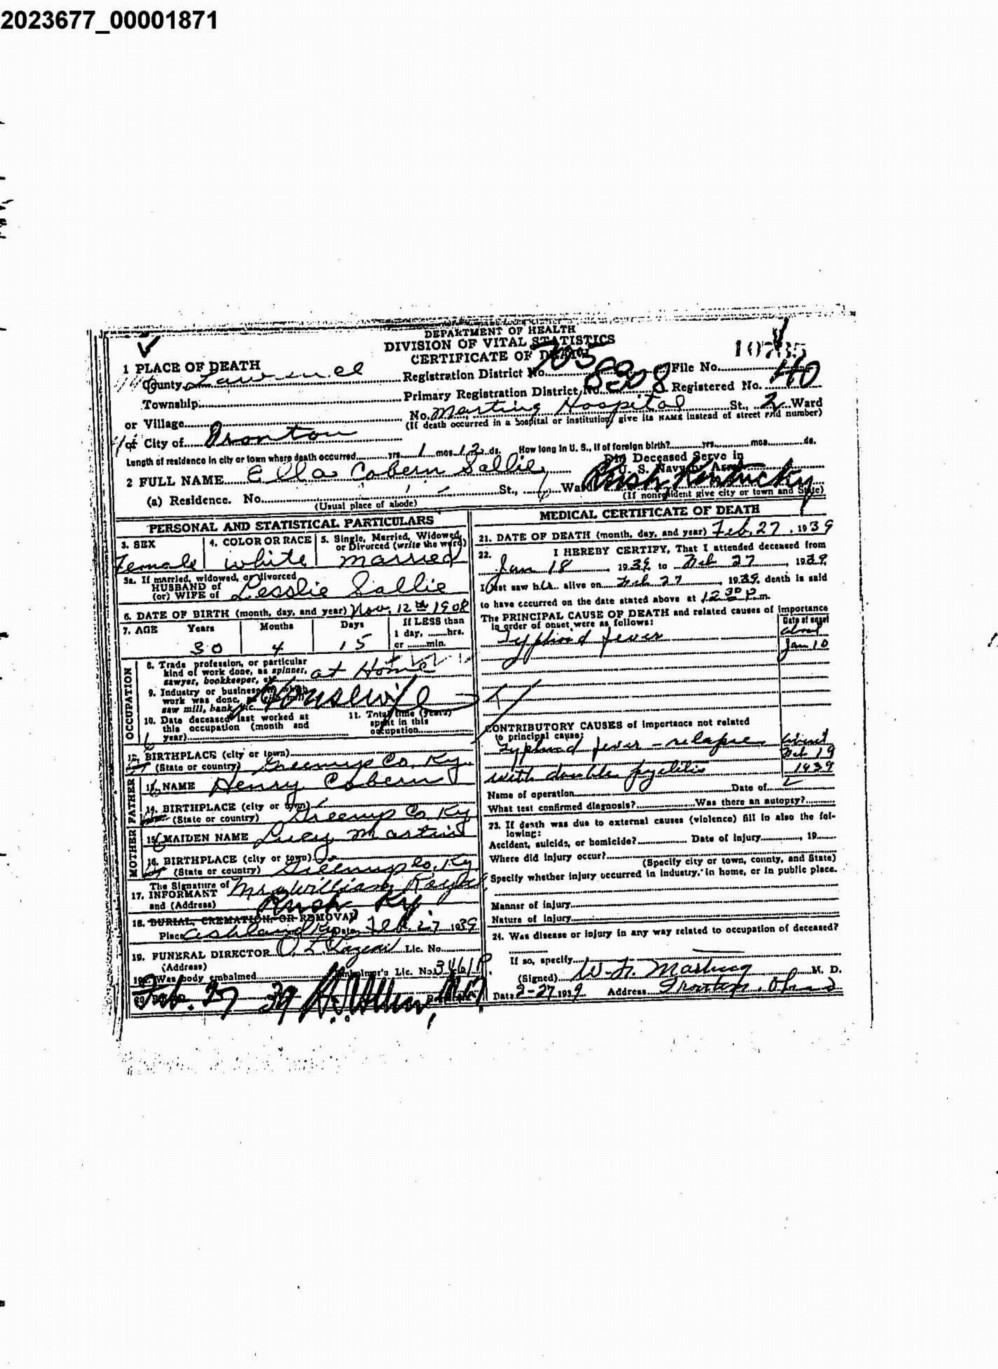 2023677_00001871
DEPARTMENT OF HEALTH
DIVISION OF VITAL STATISTICS
CERTIFICATE OF DEATH
1 PLACE OF DEATH
County Lawrence
Registration District No.
File No.
Township
Primary Registration District No.
Registered No. 40
or Village
No. Marting Hospital St., 2 Ward
(If death occurred in a hospital or institution, give its NAME instead of street and number)
or City of Ironton
Length of residence in city or town where death occurred yrs. 1 mos. 12 ds. How long in U. S., if of foreign birth? yrs. mos. ds.
Did Deceased Serve in
U. S. Navy or Army
2 FULL NAME Ella Cobern Sallie
(a) Residence. No. St., Ward Rush Kentucky
(Usual place of abode)
(If nonresident give city or town and State)
PERSONAL AND STATISTICAL PARTICULARS
3. SEX
Female
4. COLOR OR RACE
white
5. Single, Married, Widowed, or Divorced (write the word)
married
5a. If married, widowed, or divorced
HUSBAND of
(or) WIFE of Lesslie Sallie
6. DATE OF BIRTH (month, day, and year) Nov. 12th 1908
7. AGE Years Months Days If LESS than
1 day, hrs.
or min.
30 4 15
OCCUPATION
8. Trade, profession, or particular
kind of work done, as spinner,
sawyer, bookkeeper, at Home
9. Industry or business
work was done,
saw mill, bank, Housewife
10. Date deceased last worked at
this occupation (month and
year)
11. Total time (years)
spent in this
occupation
12. BIRTHPLACE (city or town)
(State or country) Greenup Co. Ky.
FATHER
13. NAME Henry Cobern
14. BIRTHPLACE (city or town)
(State or country) Greenup Co. Ky
MOTHER
15. MAIDEN NAME Lucy
16. BIRTHPLACE (city or town)
(State or country) Greenup Co. Ky
17. The Signature of
INFORMANT Mrs William
and (Address) Rush Ky
18. BURIAL, CREMATION, OR REMOVAL
Place Ashland Ky Date Feb 27 1939
19. FUNERAL DIRECTOR Lic. No.
(Address)
Was body embalmed Embalmer's Lic. No.
Feb. 27 39
MEDICAL CERTIFICATE OF DEATH
21. DATE OF DEATH (month, day, and year) Feb. 27, 1939
22. I HEREBY CERTIFY, That I attended deceased from
Jan 18, 1939 to Feb 27, 1939
I last saw her alive on Feb 27, 1939, death is said
to have occurred on the date stated above at 12 30 P.m.
The PRINCIPAL CAUSE OF DEATH and related causes of importance
in order of onset were as follows:
Date of onset
Typhoid fever
Jan 10
CONTRIBUTORY CAUSES of importance not related
to principal cause:
Typhoid fever - relapse
Feb 19
with double pyelitis 1939
Name of operation Date of
What test confirmed diagnosis? Was there an autopsy?
23. If death was due to external causes (violence) fill in also the following:
Accident, suicide, or homicide? Date of injury, 19
Where did injury occur?
(Specify city or town, county, and State)
Specify whether injury occurred in industry, in home, or in public place.
Manner of injury
Nature of injury
24. Was disease or injury in any way related to occupation of deceased?
If so, specify
(Signed) W. F. Marting M. D.
Date 2-27 1939 Address Ironton, Ohio